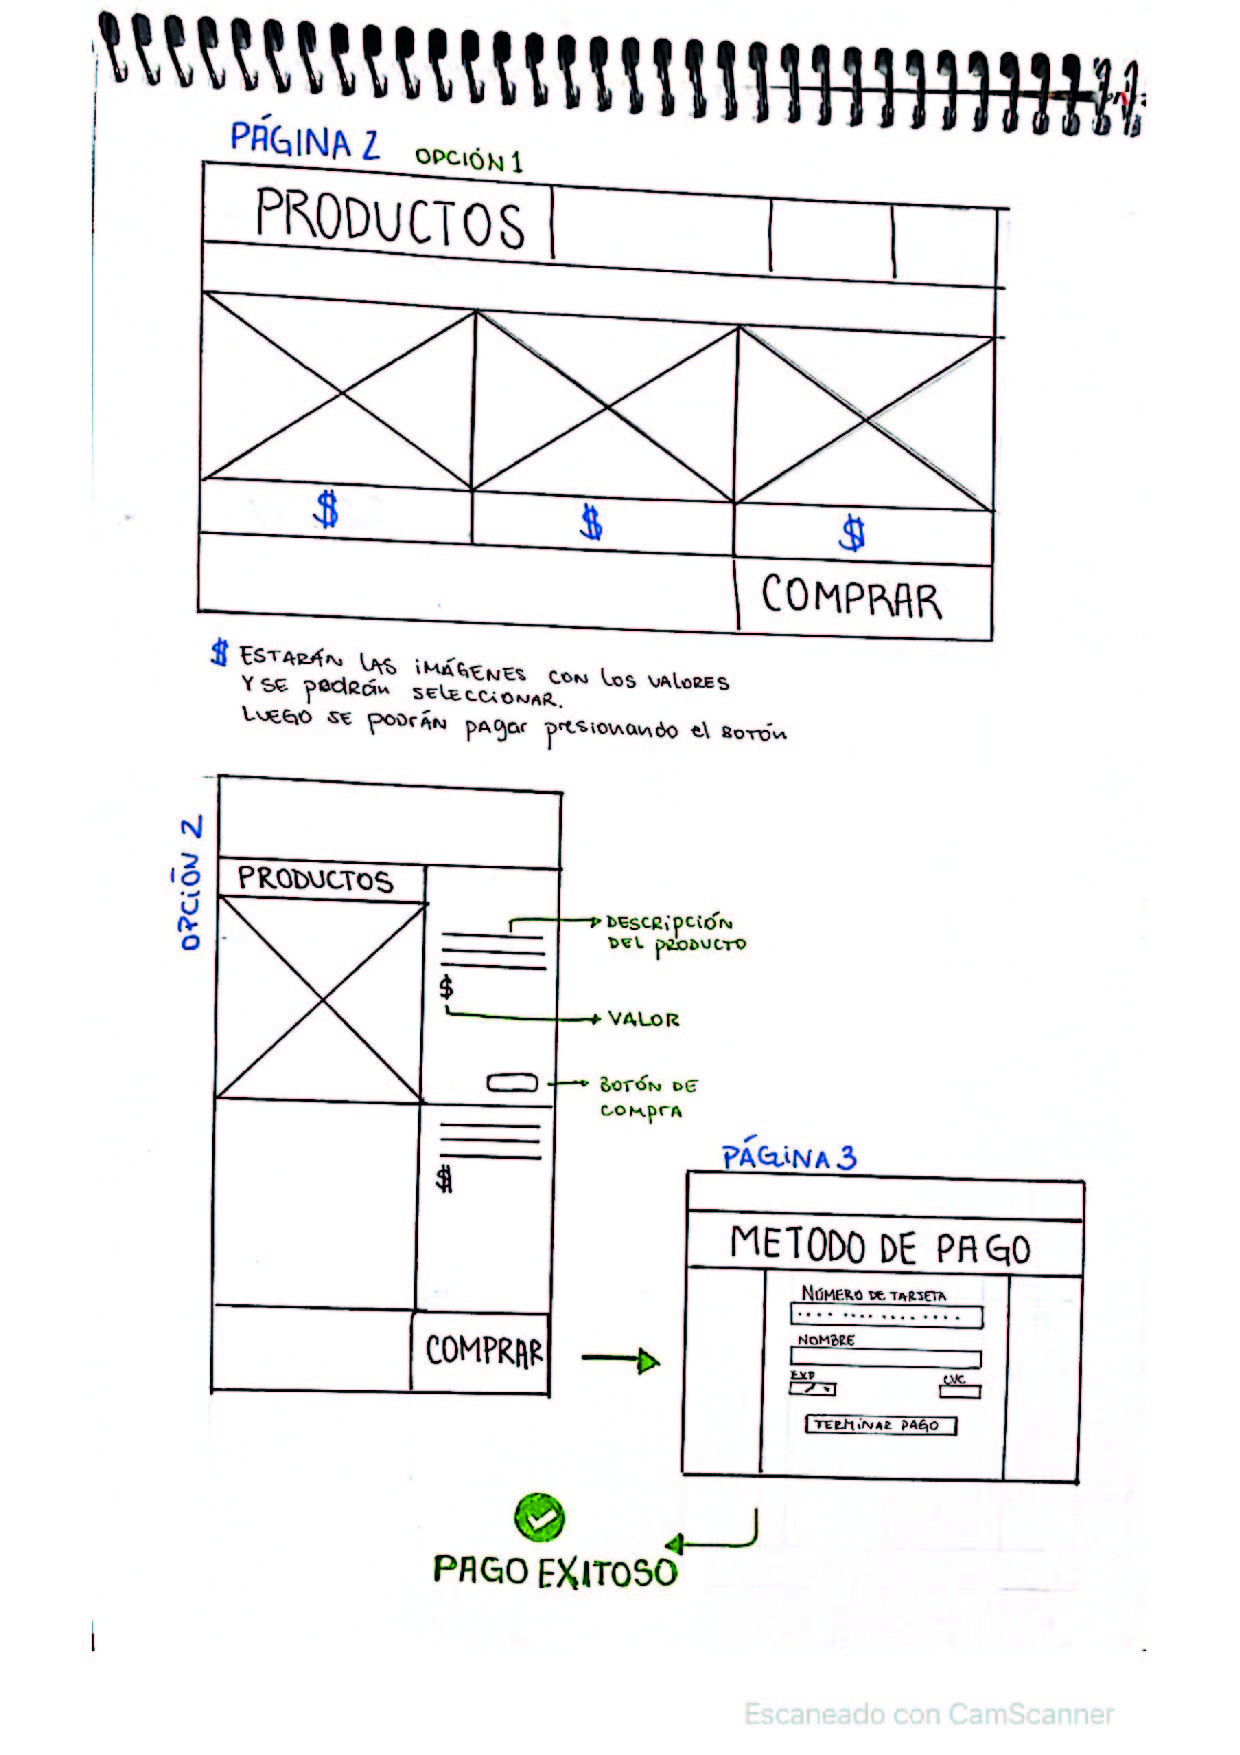 PÁGINA 2 OPCIÓN 1
PRODUCTOS
$ $ $
COMPRAR
$ ESTARÁN LAS IMÁGENES CON LOS VALORES
Y SE PODRÁN SELECCIONAR.
LUEGO SE PODRÁN PAGAR PRESIONANDO EL BOTÓN
OPCIÓN 2
PRODUCTOS
DESCRIPCIÓN
DEL PRODUCTO
$
VALOR
BOTÓN DE
COMPRA
$
COMPRAR
PÁGINA 3
METODO DE PAGO
NÚMERO DE TARJETA
.... .... .... ....
NOMBRE
EXP CVC
TERMINAR PAGO
PAGO EXITOSO
Escaneado con CamScanner